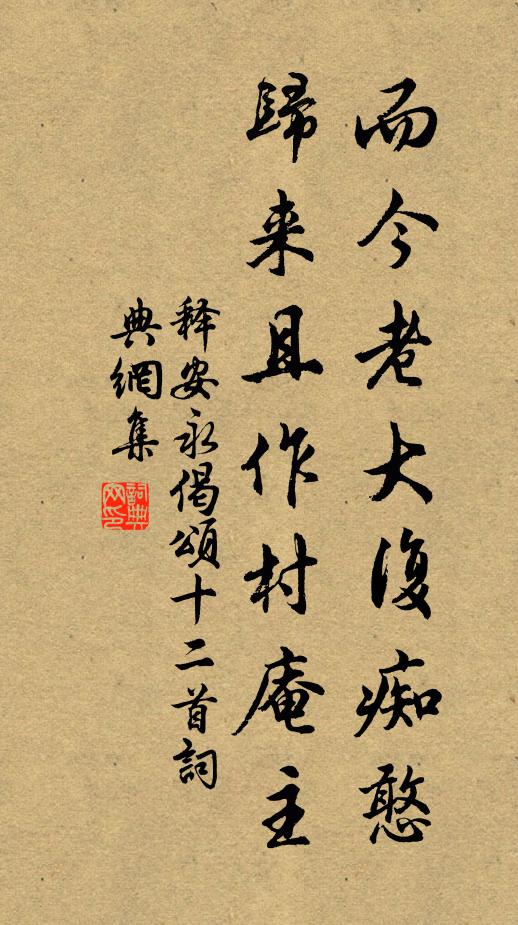 而今老大復痴憨
歸来且作村庵主
释安永偈頌十二首詞
典網集
詞典网印